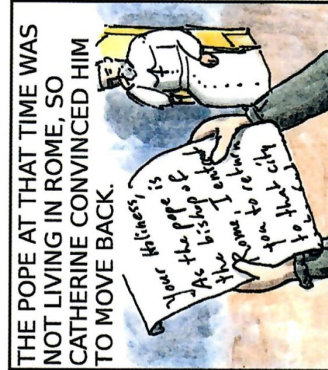 THE POPE AT THAT TIME WAS
NOT LIVING IN ROME, SO
CATHERINE CONVINCED HIM
TO MOVE BACK.
Your Holiness,
As the pope is
the bishop of
Rome I entreat
you to return
to that city